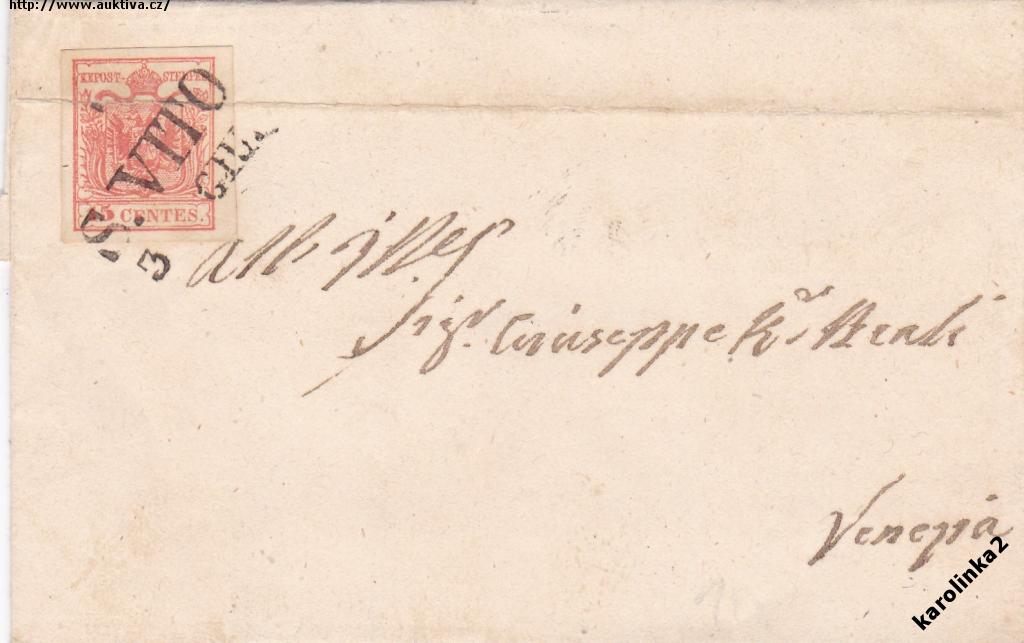 http://www.auktiva.cz/
KKPOST-STEMPEL
S. VITO
3 GIU.
15 CENTES.
All' Ill.
Sig.r Giuseppe K.r Reali
Venezia
karolinka2